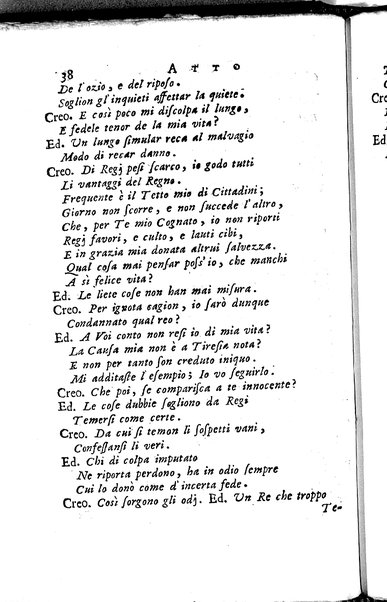 38 ATTO
De l'ozio, e del riposo.
Soglion gl'inquieti affettar la quiete.
Creo. E così poco mi discolpa il lungo,
E fedele tenor de la mia vita?
Ed. Un lungo simular reca al malvagio
Modo di recar danno.
Creo. Di Regj pesi scarco, io godo tutti
Li vantaggi del Regno.
Frequente è il Tetto mio di Cittadini;
Giorno non scorre, e non succede l'altro,
Che, per Te mio Cognato, io non riporti
Regj favori, e culto, e lauti cibi,
E in grazia mia donata altrui salvezza.
Qual cosa mai pensar poss'io, che manchi
A sì felice vita?
Ed. Le liete cose non han mai misura.
Creo. Per ignota cagion, io sarò dunque
Condannato qual reo?
Ed. A Voi conto non resi io di mia vita?
La Causa mia non è a Tiresia nota?
E non per tanto son creduto iniquo.
Mi additaste l'esempio; Io vo seguirlo.
Creo. Che poi, se comparisca a te innocente?
Ed. Le cose dubbie sogliono da Regi
Temersi come certe.
Creo. Da cui si temon li sospetti vani,
Confessansi li veri.
Ed. Chi di colpa imputato
Ne riporta perdono, ha in odio sempre
Cui lo donò come d'incerta fede.
Creo. Così sorgono gli odj. Ed. Un Re che troppo
Te-